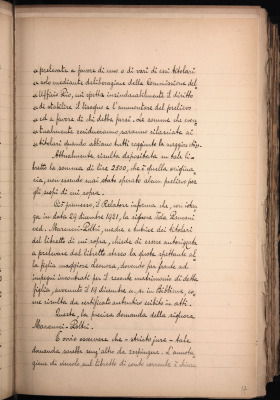 « prelevata a favore di uno o di vari di essi titolari
« solo mediante deliberazione della Commissione del=
« l'Ufficio Pio, cui spetta insindacabilmente il diritto
« di stabilire il bisogno e l'ammontare del prelievo
« ed a favore di chi debba farsi. Le somme che even=
« tualmente residueranno saranno rilasciate ai
« titolari quando abbiano tutti raggiunto la maggior età».
Attualmente risulta depositata in tale li=
bretto la somma di lire 2500, che è quella origina=
ria, non essendo mai stato operato alcun prelievo per
gli scopi di cui sopra.
Ciò premesso, il Relatore informa che, con istan=
za in data 29 dicembre 1931, la signora Ida
ved. Maranni-Polbi, madre e tutrice dei titolari
del libretto di cui sopra, chiede di essere autorizzata
a prelevare dal libretto stesso la quota spettante al=
la figlia maggiore Eleonora, dovendo far fronte ad
impegni incontrati per il recente matrimonio di detta
figlia, avvenuto il 19 dicembre u. s. in Bibbiena, co=
me risulta da certificato autentico esibito in atti.
Questa, la precisa domanda della signora
Maranni-Polbi.
È ovvio osservare che - stricto jure - tale
domanda sarebbe senz'altro da respingere. L'annota=
zione di vincolo sul libretto di conto corrente è chiara